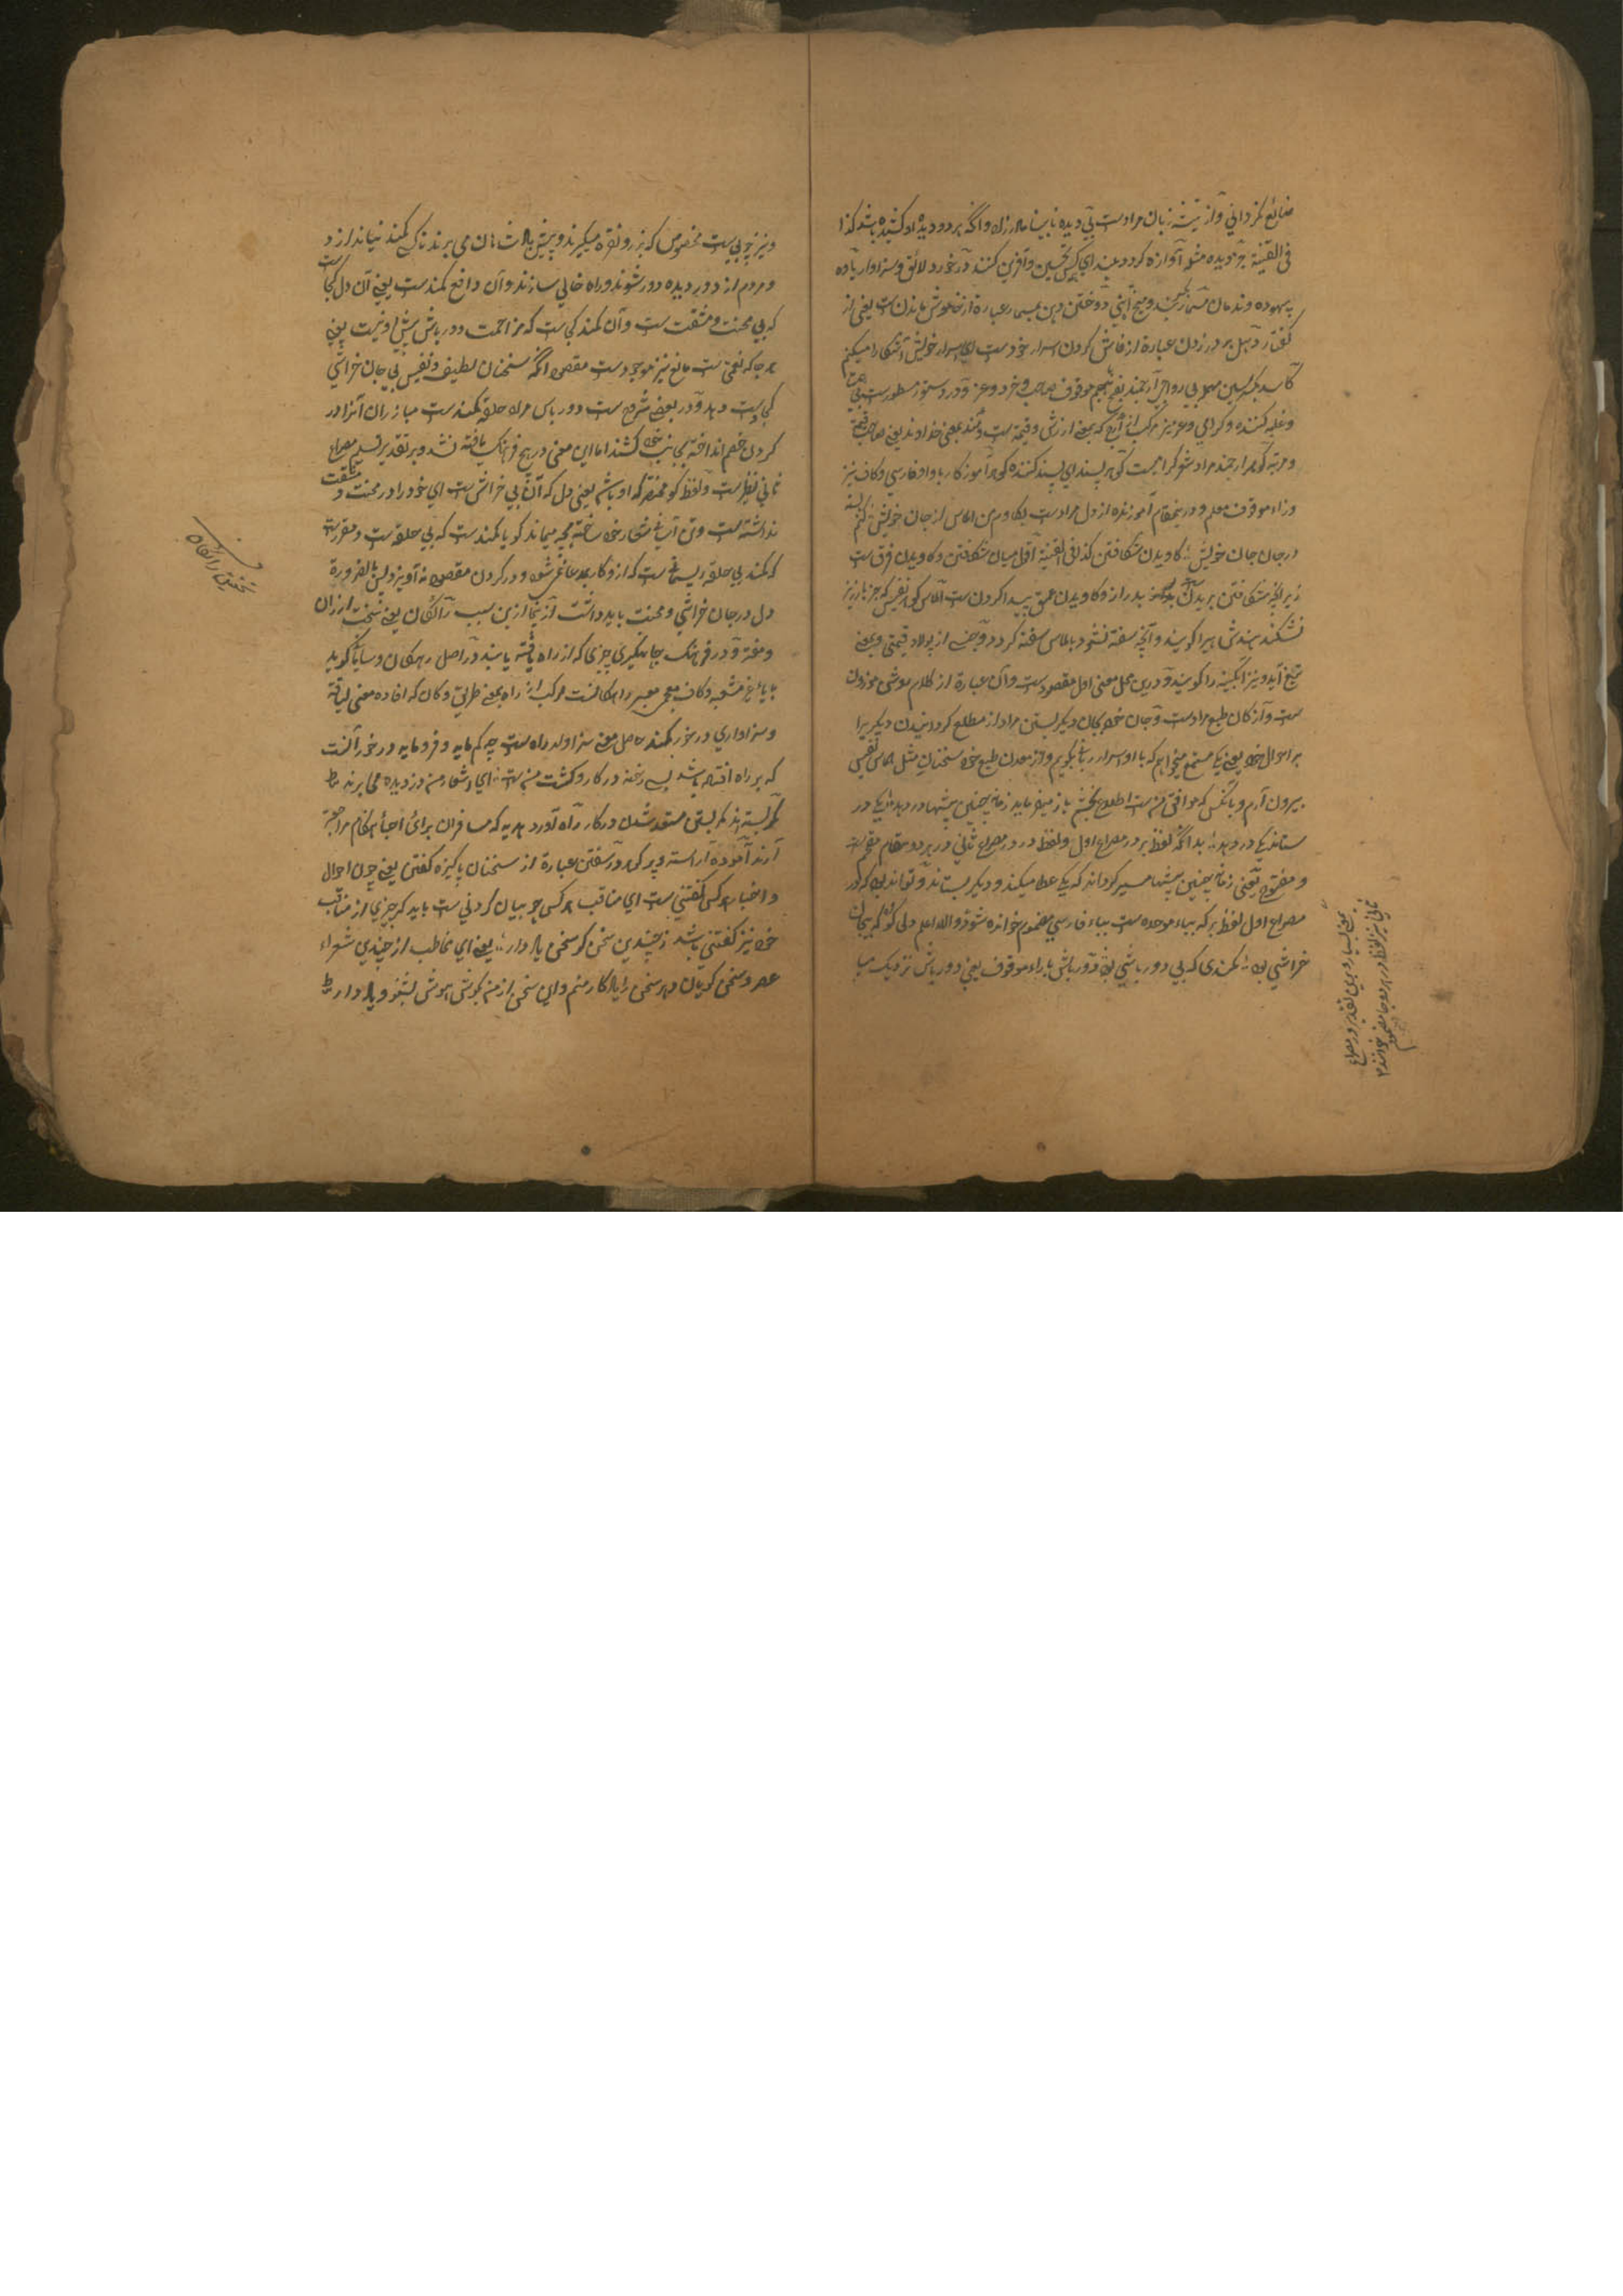 ضائع نگردانی و از تیشه زبان مرادست بی دیده نابینا مادرزاد و آنکه هر دو دیده او کشیده باشد کذا
فی القنیة هر دیده مشو آوازه گردد بلندای کسی تحسین و آفرین کنند درخورد لائق و سزاوار یاده
بیهوده و میخ آهنی دوختن دهن بمسمار عبارة از خاموش ماندن ست یعنی از
گفتار دهل بر در زدن عبارة از فاش کردن اسرار خودست ای اسرار خویش آشکارا میکنم
کاسد بکسر سین مهمله بی رواج ارجمند بفتح جیم موقوف صاحب خرد و عز و در دستور مسطورست
و غلبه کننده و گرامی و عزیز مرکب از ارج که بمعنی ارزش و قیمت ست و مند بمعنی خداوند یعنی صاحب قیمت
و مرتبه گوهر ارجمند مراد شعر گرامیست گهر پسند ای پسند کننده گوهر آموزگار با واو فارسی و کاف نیز
وزاء موقوف معلم و درینمقام آموزنده از دل مرادست بکاوم من الماس از جان خویش کنم
در جان جان خویش کاویدن شکافتن کذا فی القنیة اقول میان شکافتن و کاویدن فرق ست
زیرا که شکافتن بریدن و کاویدن عمق پیدا کردن ست الماس گوهر نفیس که جز بارزیز
نشکند هندش هیرا گویند و آنچه سفته نشود بالماس سفته گردد و جنسی از پولاد قیمتی و بمعنی
تیغ آید و نیز آبگینه را گویند و درین محل معنی اول مقصودست و آن عبارة از کلام موشی موزون
ست و از کان طبع مرادست و جان خود بجان دیگر بستن مراد از مطلع گردانیدن دیگریرا
بر احوال خود یعنی یک مستمع میخواهم که با او اسرار بگویم و از معدن طبع خود سخنان مثل الماس نفیس
بیرون آرم و با کس که موافق منست اطلاع بخشم باز میفرماید زمانه چنین پیشها در دهد یکی در
ستاند یکی در دهد بدانکه لفظ بر در مصراع اول و لفظ در در مصراع ثانی در هر دو مقام مقحم ست
و مفتوح یعنی زمانه چنین پیشها میسر گرداند که یکی عطا میکند و دیگر بستاند و تواند بود که در
مصراع اول لفظ بر که بباء موحده ست بباء فارسی مضموم خوانده شود والله اعلم دلی کو که بیجان
خراشی بود کمندی که بی دور باشی بود دور باش با راء موقوف یعنی دور باش نزدیک میا
بمعنی بسیار و برین تقدیر در مصراع
ثانی نیز لفظ در هر دو جا مضموم خوانند ۱۲
و نیز چوبی ست مخصوص که بزر و نقره میگیرند و پیش پادشاهان می برند تا کسی کمند نیاندازد
و مردم از دور دیده دور شوند و راه خالی سازند و آن دافع کمندست یعنی آن دل کجاست
که بی محنت و مشقت ست و آن کمند کی ست که مزاحمت دور باش پیش او نیست یعنی
هر جا که نعمتی ست مانع نیز موجودست مقصود آنکه سخنان لطیف و نفیس بی جان خراشی
کی دست دهد و در بعضی شرح ست دور باش مراد حلقه کمندست مبارزان آنرا در
گردن خصم انداخته بجانب خود کشند اما این معنی در هیچ فرهنگ یافته نشد و بر تقدیر تسلیم مصراع
ثانی نظیرست و لفظ کو مختصر که او باشد یعنی دل که آن بی خراش ست ای خود را در محنت و مشقت
نداشته ست و تن آسانی شعار خود ساخته بچه میماند گویا کمندست که بی حلقه ست و مقررست
که کمند بی حلقه ریسمانی ست که ازو کار برنیاید و در گردن مقصود نه آویزد پس بالضرورة
دل در جان خراشی و محنت باید داشت ازینجا ازین سبب رایگان یعنی سخت ارزان
و مفت و در فرهنگ جهانگیری چیزی که از راه یافته باشند در اصل راهگان و شایگان گویند
و سزاواری در خور کمند حاصل معنی سزاوار راه ست چه کم مایه و فرومایه درخور آنست
که بر راه افتاده باشد بسی رخنه در کار و کشت من ست ای اشعار من دزدیده می برند
کمر بسته اند کمر بستن مستعد شدن در کار راه آورد هدیه که مسافران برای احباء هنگام مراجعة
آرند آموده آراسته و پر گهر در سفتن عبارة از سخنان پاکیزه گفتن یعنی چون احوال
و اخبار هر کس گفتنی ست ای مناقب هر کس چو بیان کردنی ست باید که چیزی از مناقب
خود نیز گفتنی باشد ز چندین سخن گو سخن یاد دار یعنی ای مخاطب از چندی شعراء
عصر و سخن گویان دهر سخن را یادگار منم و این سخن از من بگوش هوش بشنو و یاد دار
تحقیق رائگان